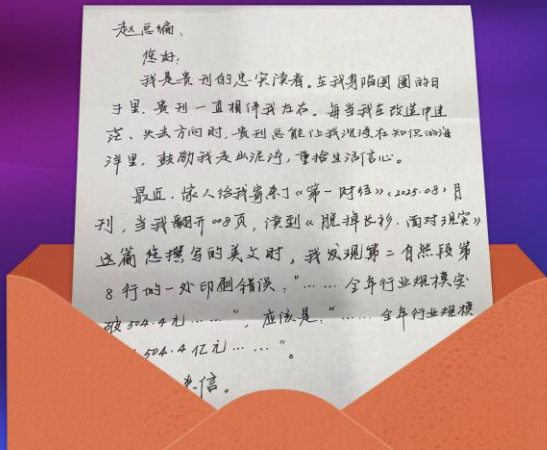 赵总编、
您好:
我是贵刊的忠实读者。在我身陷囹圄的日
子里，贵刊一直相伴我左右。每当我在改造中迷
茫、失去方向时，贵刊总能让我沉浸在知识的海
洋里，鼓励我走出泥泞，重拾生活信心。
最近，家人给我寄来了《第一财经》(2025.08)月
刊，当我翻开008页，读到《脱掉长衫·面对现实》
这篇您撰写的美文时，我发现第二自然段第
8行的一处印刷错误："……全年行业规模突
破504.4元……"，应该是："……全年行业规模
504.4亿元……"。
信。